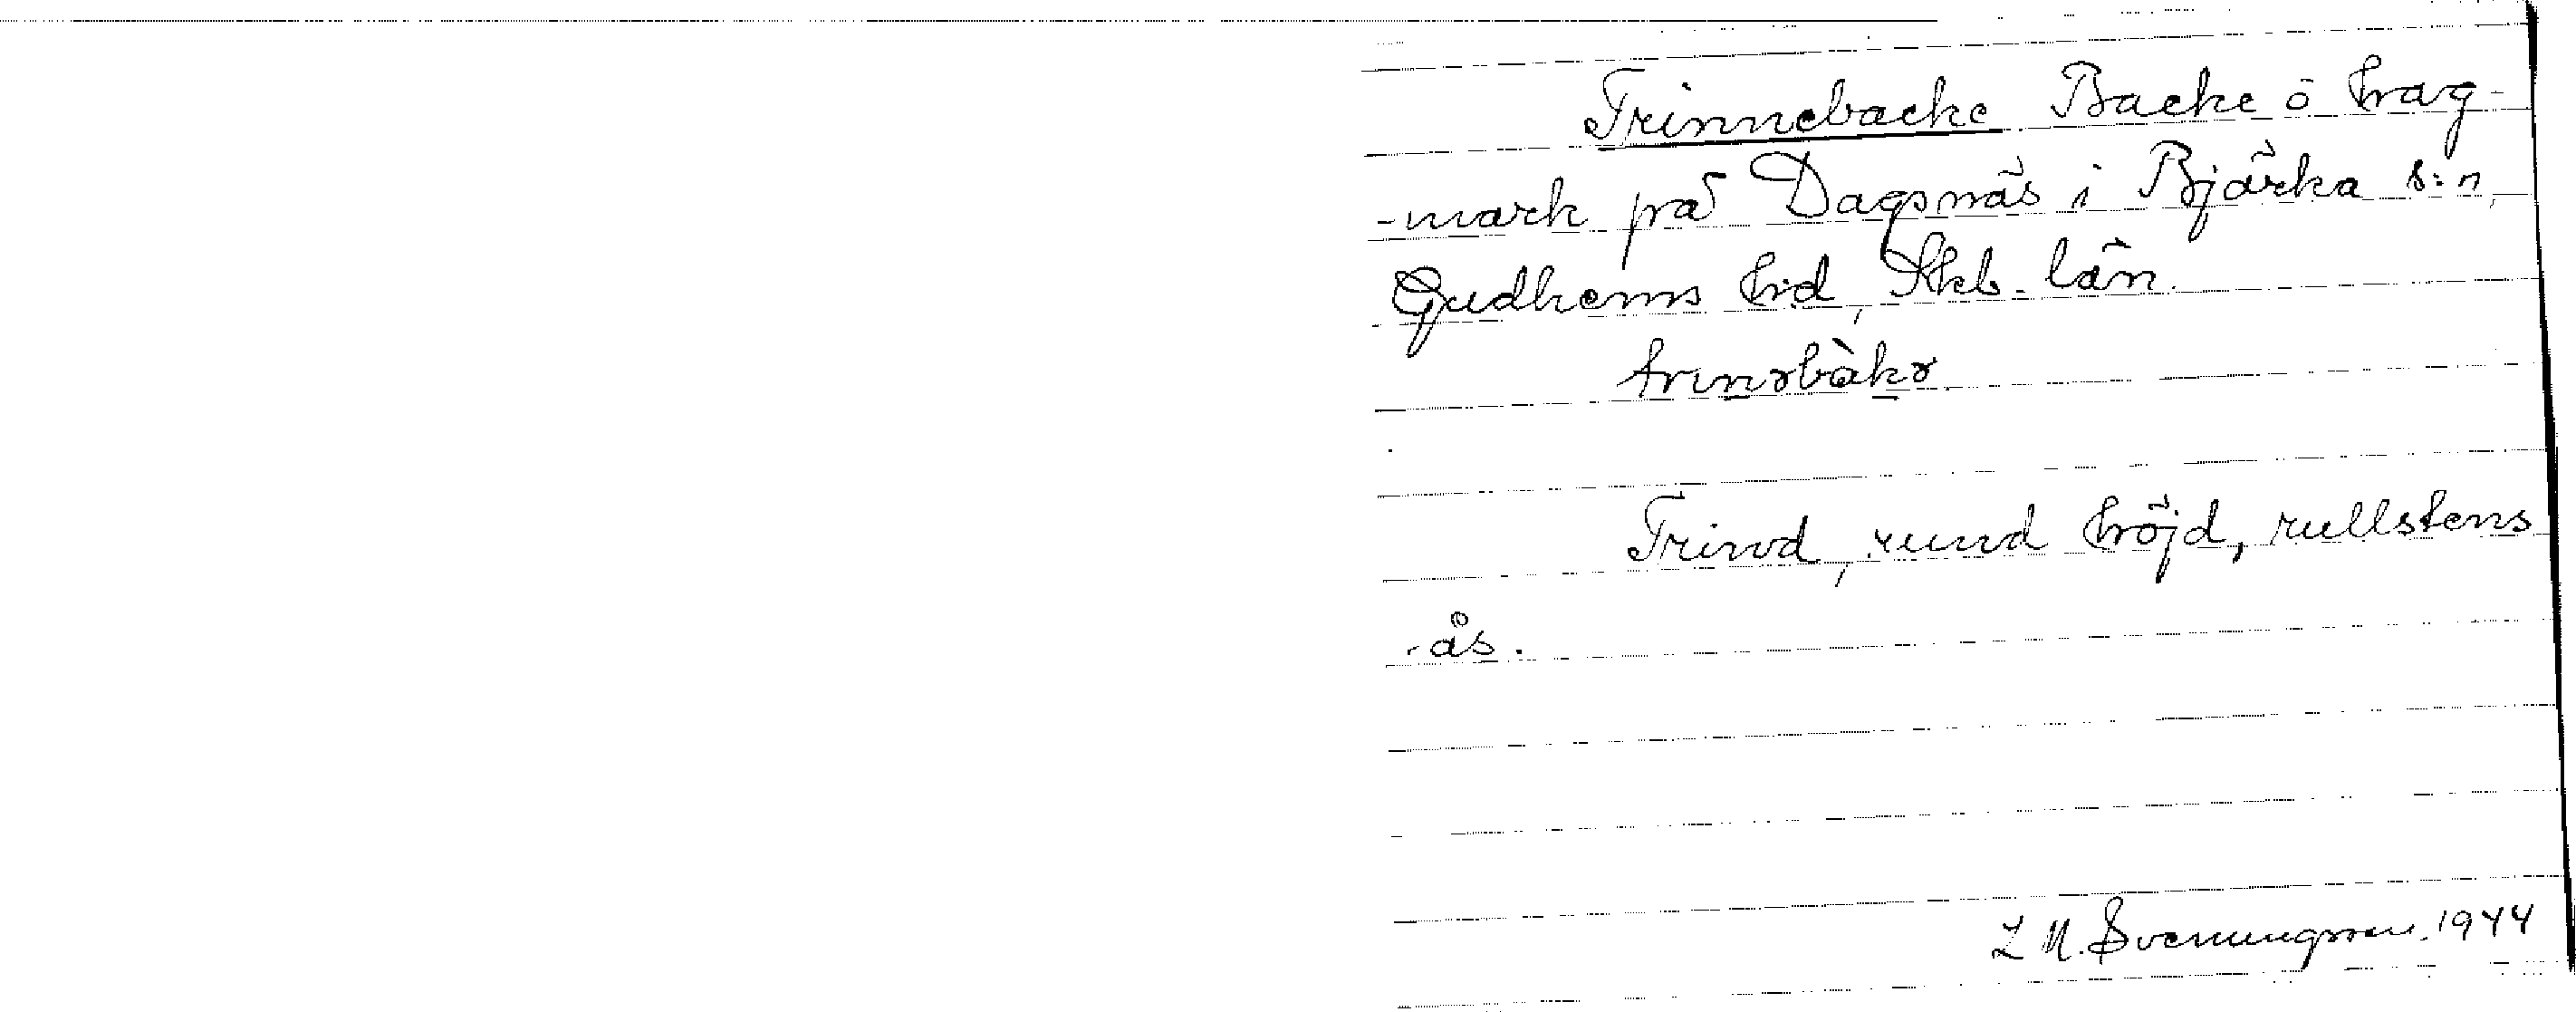 Trinnebacke Backe o hag-
-mark på Dagsnäs i Bjärka s:n,
Gudhems hd, Skb. län.
trinəbàkə
Trind, rund höjd, rullstens
-ås.
L M. Svenungsson. 1944